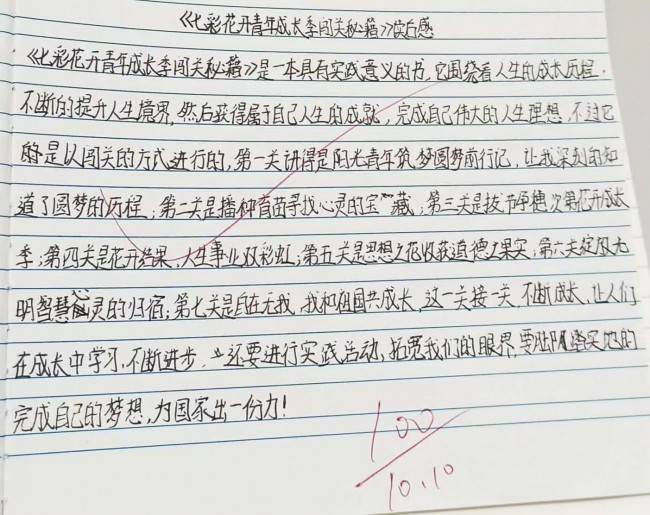 《七彩花开青年成长季闯关秘籍》读后感
《七彩花开青年成长季闯关秘籍》是一本具有实践意义的书,它围绕着人生的成长历程,
不断的提升人生境界,然后获得属于自己人生的成就,完成自己伟大的人生理想,不过它
的是以闯关的方式进行的,第一关讲得是阳光青年筑梦圆梦前行记,让我深刻的知
道了圆梦的历程;第二关是播种育苗寻找心灵的宝藏;第三关是拔节孕穗次第花开成长
季;第四关是花开结果,人生事业双彩虹;第五关是思想之花收获道德之果实,第六关绽放光
明智慧心灵的归宿;第七关是自在无我,我和祖国共成长,这一关接一关,不断成长,让人们
在成长中学习,不断进步,还要进行实践活动,拓宽我们的眼界,要踏实地的
完成自己的梦想,为国家出一份力!
100
10.10